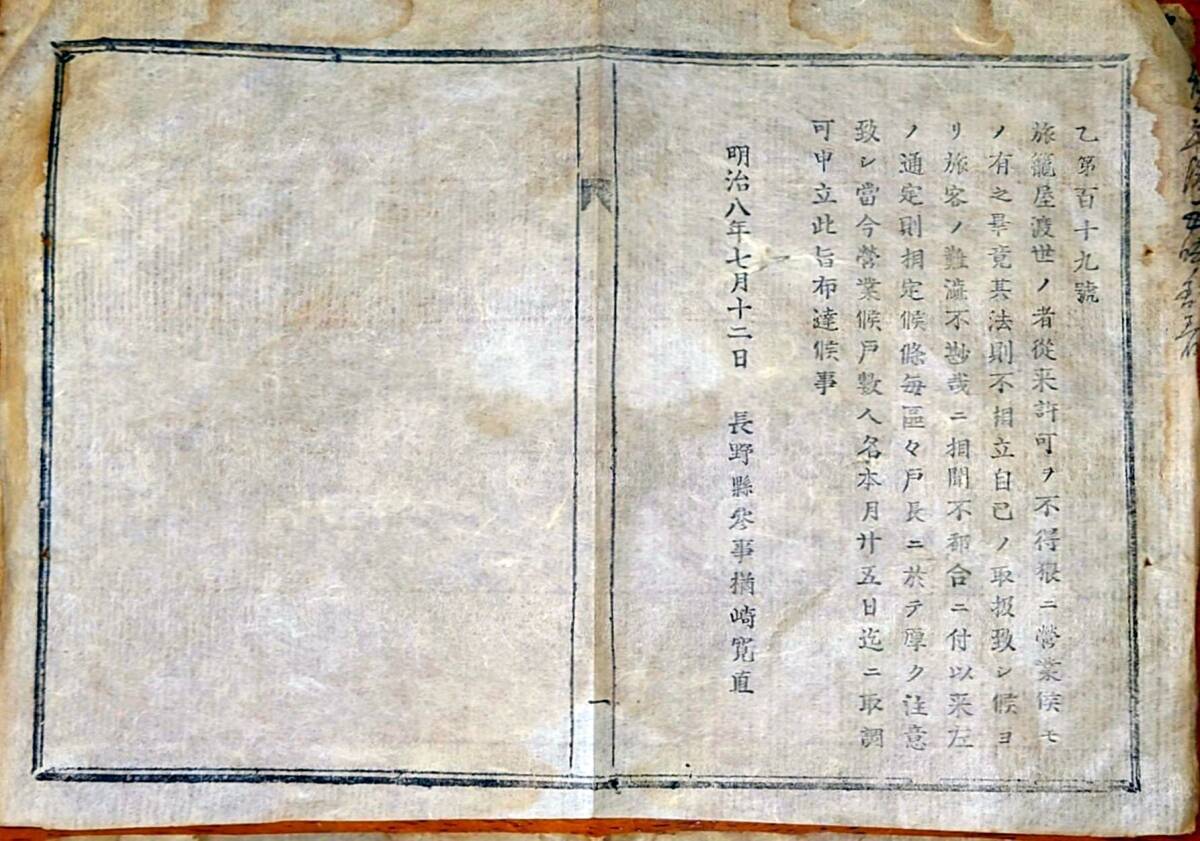 乙第百十九號
旅籠屋渡世ノ者從来許可ヲ不得猥ニ營業候モ
ノ有之畢竟其法則不相立自己ノ取扱致シ候ヨ
リ旅客ノ難澁不尠哉ニ相聞不都合ニ付以来左
ノ通定則相定候條毎區々戸長ニ於テ厚ク注意
致シ當今營業候戸數人名本月廿五日迄ニ取調
可申立此旨布達候事
明治八年七月十二日 長野縣參事楢崎寛直
一